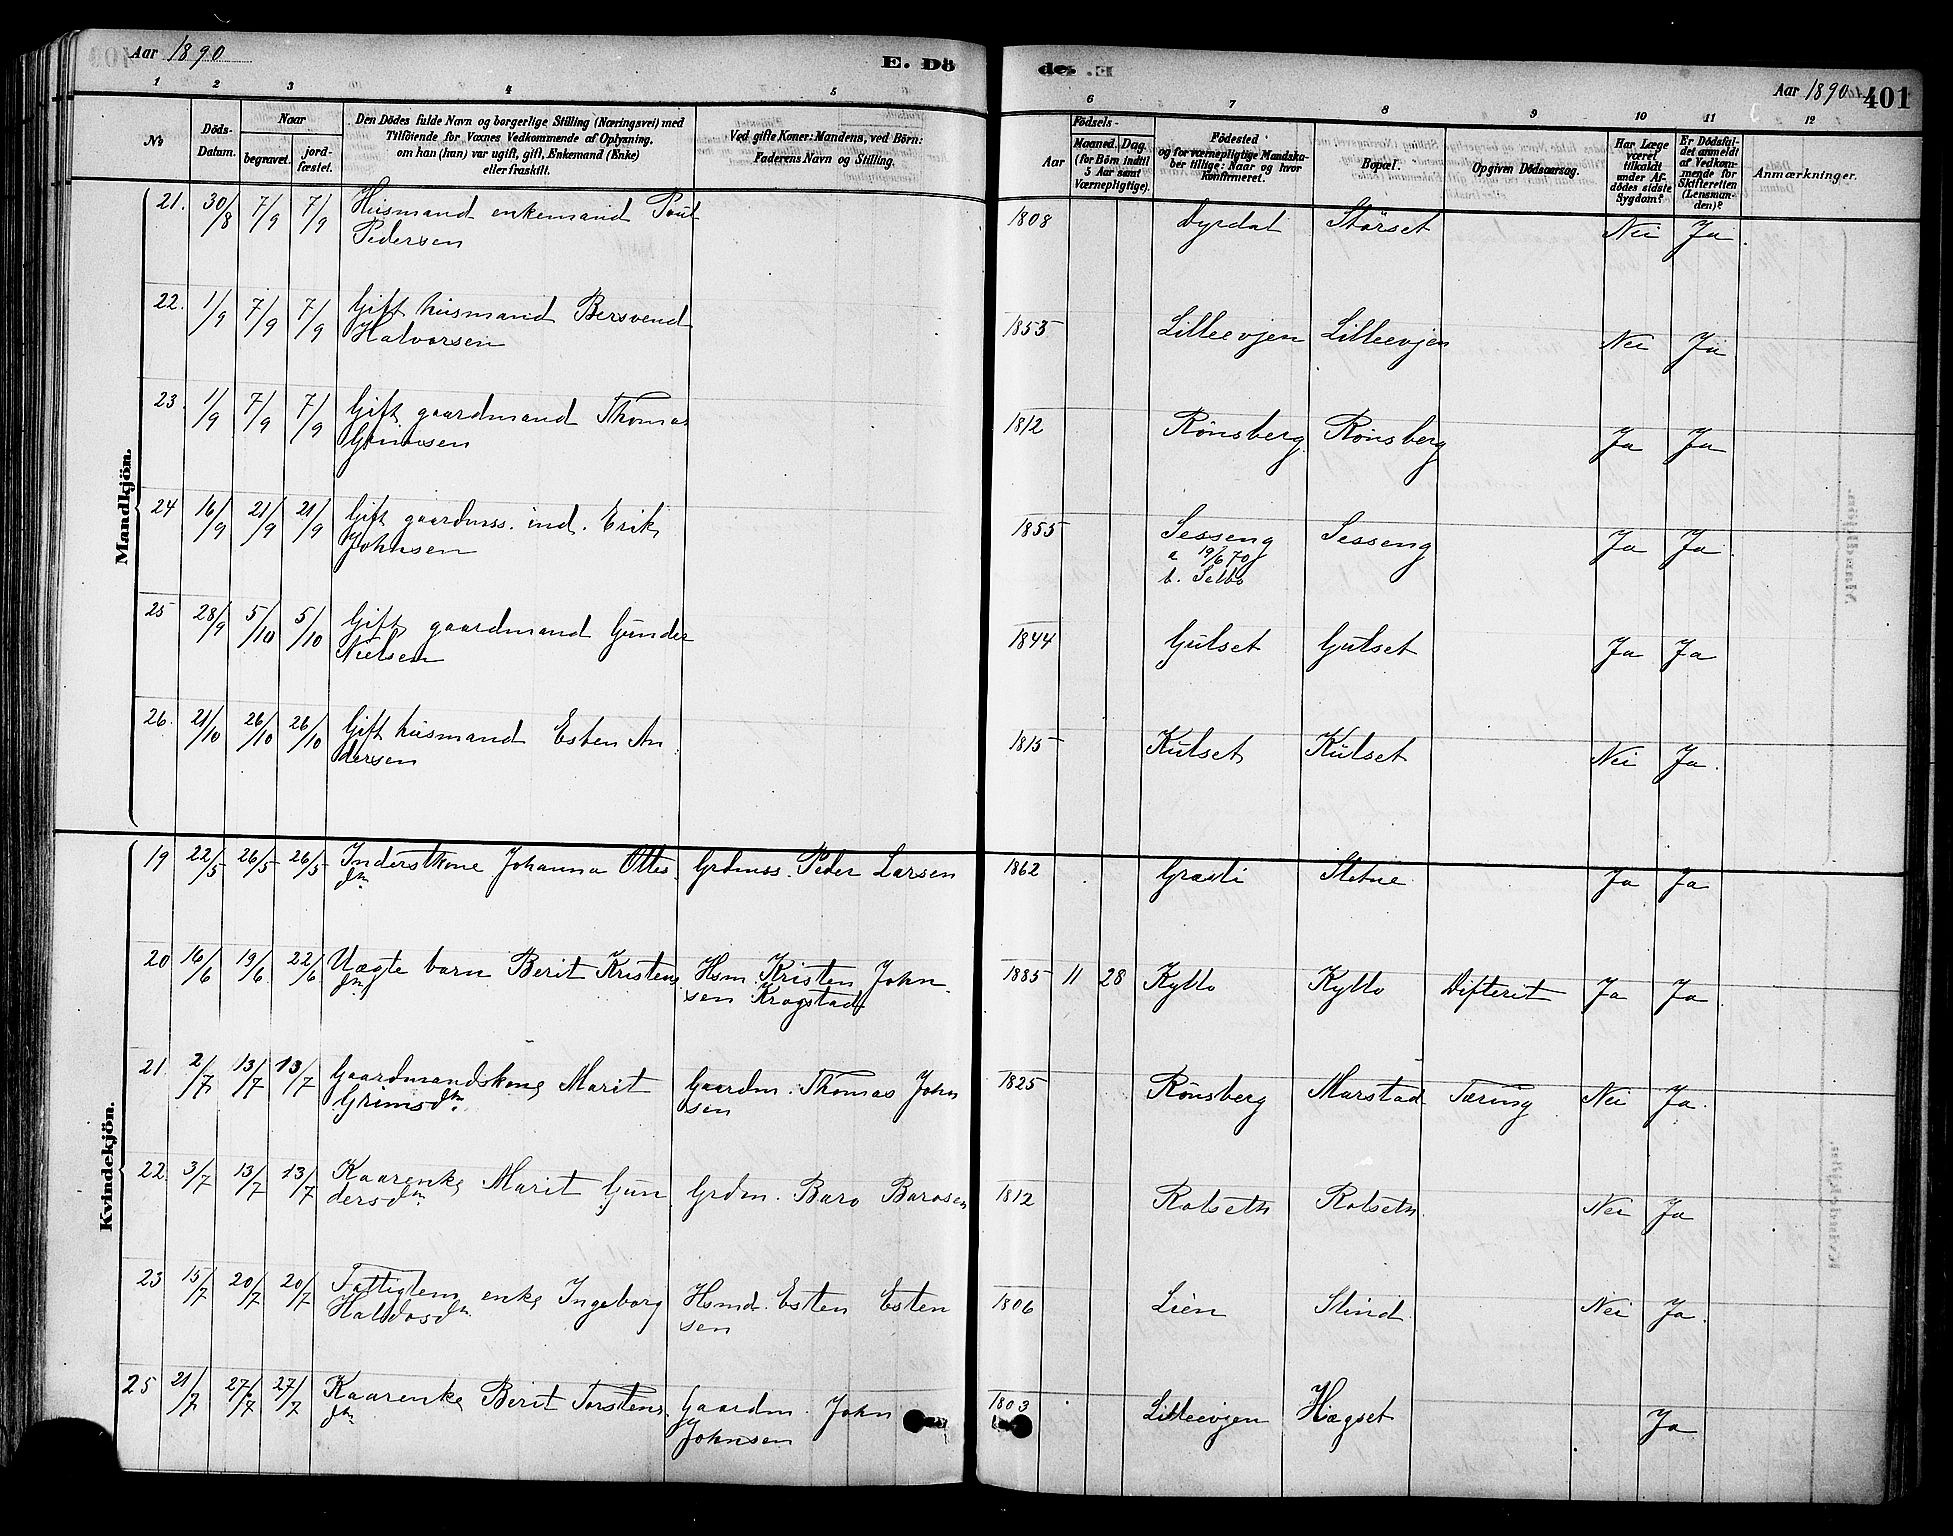 Aar 1890
E. Dö
de. E.
Aar 1890
401
1 2 3 4 5 6 7 8 9 10 11 12
No
Döds-
Datum.
Naar
begravet.
jord-
fæstet.
Den Dödes fulde Navn og borgerlige Stilling (Næringsvei) med
Tilföiende for Voxnes Vedkommende af Oplysning,
om han (hun) var ugift, gift, Enkemand (Enke)
eller fraskilt.
Ved gifte Koner: Mandens, ved Börn:
Faderens Navn og Stilling.
Födsels-
Aar
Maaned. Dag.
(for Börn indtil
5 Aar samt
Værnepligtige).
Födested
og for værnepligtige Mandska-
ber tillige: Naar og hvor
Konfirmeret.
Bopæl.
Opgiven Dödsaarsag.
Har Læge
været
tilkaldt
under Af-
dödes sidste
Sygdom?
Er Dödsfal-
det anmeldt
af Vedkom-
mende for
Skifteretten
(Lensman-
den)?
Anmærkninger.
Mandkjön.
21. 30/8 7/9 7/9 Husmand enkemand Poul
Pedersen
1808 Dyrdal Størset Nei Ja.
22. 1/9 7/9 7/9 Gift husmand Bersvend
Halvorsen
1853 Lilleevjen Lilleevjen Nei Ja
23. 1/9 7/9 7/9 Gift gaardmand Thomas
1812 Rønsberg Rønsberg Ja Ja
24 16/9 21/9 21/9 Gift gaardmss. ind. Erik
Johnsen
1855 Sesseng Sesseng Ja Ja
a 19/6 70
b. Selbo
25 28/9 5/10 5/10 Gift gaardmand Gunder
Nielsen
1844 Gulset Gulset Ja Ja
26. 21/10 26/10 26/10 Gift husmand Esten An
dersen
1815 Kulset Kulset Nei Ja.
Kvindekjön.
19 22/5 26/5 26/5 Inderstkone Johanna Ottes
dtr Grdmss. Peder Larsen
1862 Græsli Stetne Ja Ja
20 16/6 19/6 22/6 Uægte barn Berit Kristens
dtr Hsm. Kristen John
sen Krogstad
1885 11 28 Kyllo Kyllo Difterit Ja Ja
21. 2/7 13/7 13/7 Gaardmandskone Marit
Grimsdtr. Gaardm. Thomas John
sen
1825 Rønsberg Marstad Tæring Nei Ja.
22. 3/7 13/7 13/7 Kaarenke Marit Gun
dersdtr Grdm. Baro Barosen
1812 Rolseth Rolseth. Nei Ja
23 15/7 20/7 20/7 Fattiglem enke Ingeborg
Haldosdtr Hsmd. Esten Esten
sen
1806 Lien Slind Nei Ja.
25 21/7 27/7 27/7 Kaarenke Berit Torstens
dtr Gaardm. John
Johnsen
1803 Lilleevjen Hægset Ja